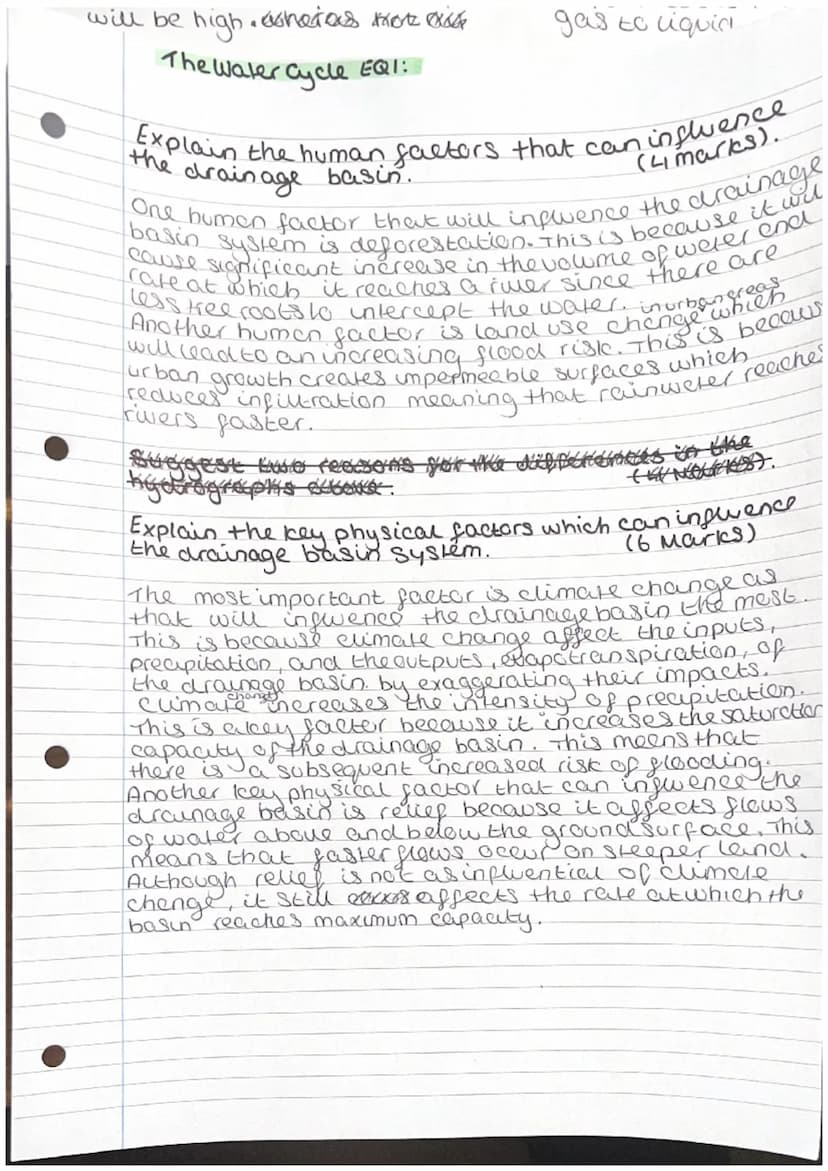 will be high. whereas not        gas to liquid
The Water Cycle EQ1:
Explain the human factors that can influence
the drainage basin.        (4 marks).
One human factor that will influence the drainage
basin system is deforestation. This is because it will
cause significant increase in the volume of water and
rate at which it reaches a river since there are
less tree roots to intercept the water. in urban areas
Another human factor is land use change which
will lead to an increasing flood risk. This is becaus
urban growth creates impermeable surfaces which
reduces infiltration meaning that rainwater reaches
rivers faster.
Suggest two reasons for the differences in the
hydrographs above.        (4 Marks).
Explain the key physical factors which can influence
the drainage basin system.        (6 Marks)
The most important factor is climate change as
that will influence the drainage basin the most.
This is because climate change affect the inputs,
precipitation, and the outputs, evapotranspiration, of
the drainage basin by exaggerating their impacts.
Climate change increases the intensity of precipitation.
This is a key factor because it increases the saturation
capacity of the drainage basin. This means that
there is a subsequent increased risk of flooding.
Another key physical factor that can influence the
drainage basin is relief because it affects flows
of water above and below the ground surface. This
means that faster flows occur on steeper land.
Although relief is not as influential of climate
change, it still affects the rate at which the
basin reaches maximum capacity.